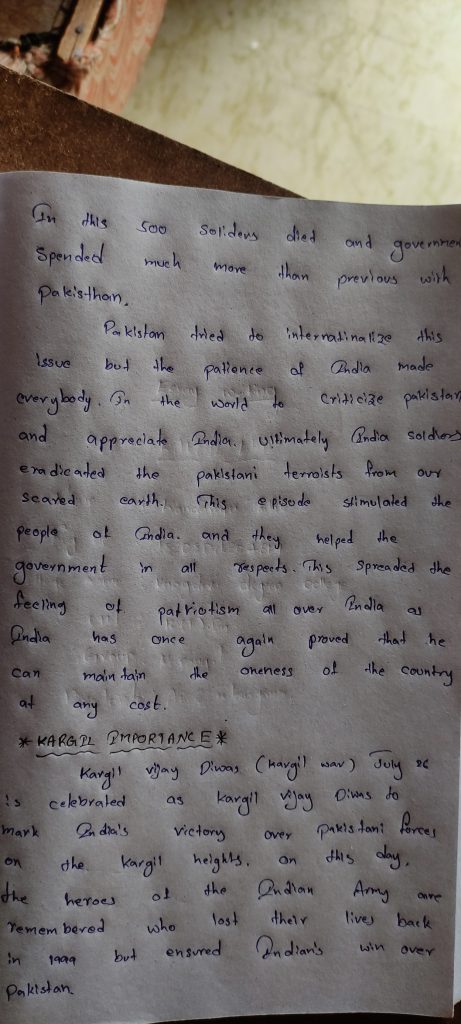 In this 500 Soliders died and governmen
Spended much more than previous with
Pakisthan.
Pakistan tried to internatinalize this
Issue but the patience of India made
everybody. In the world to criticize pakistan
and appreciate India. Ultimately India soldiers
eradicated the pakistani terroists from our
scared earth. This episode stimulated the
people of India. and they helped the
government in all respects. This spreaded the
feeling of patriotism all over India as
India has once again proved that he
can maintain the oneness of the country
at any cost.
* KARGIL IMPORTANCE *
Kargil vijay Diwas (Kargil war) July 26
is celebrated as kargil vijay Diwas to
mark India's victory over pakistani forces
on the kargil heights. on this day,
the heroes of the Indian Army are
remembered who lost their lives back
in 1999 but ensured Indian's win over
Pakistan.